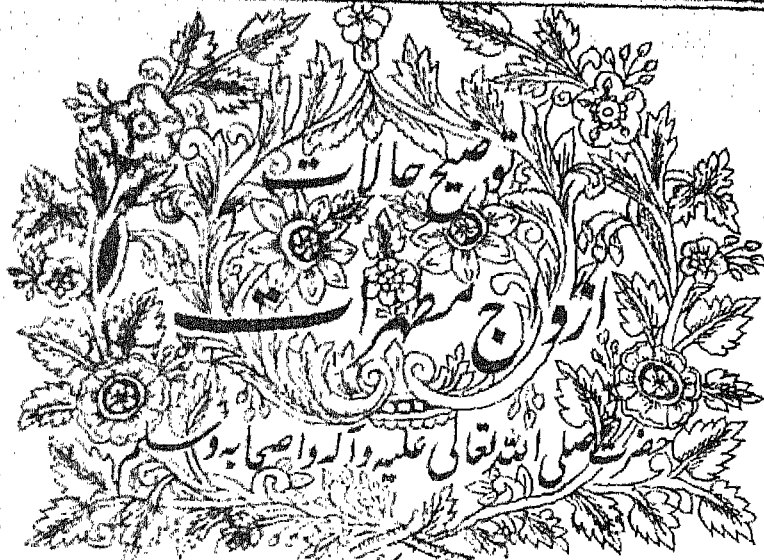 توضیح حالات
ازواج مطهرات
حضرت صلی اللہ تعالی علیہ وآلہ واصحابہ وسلم